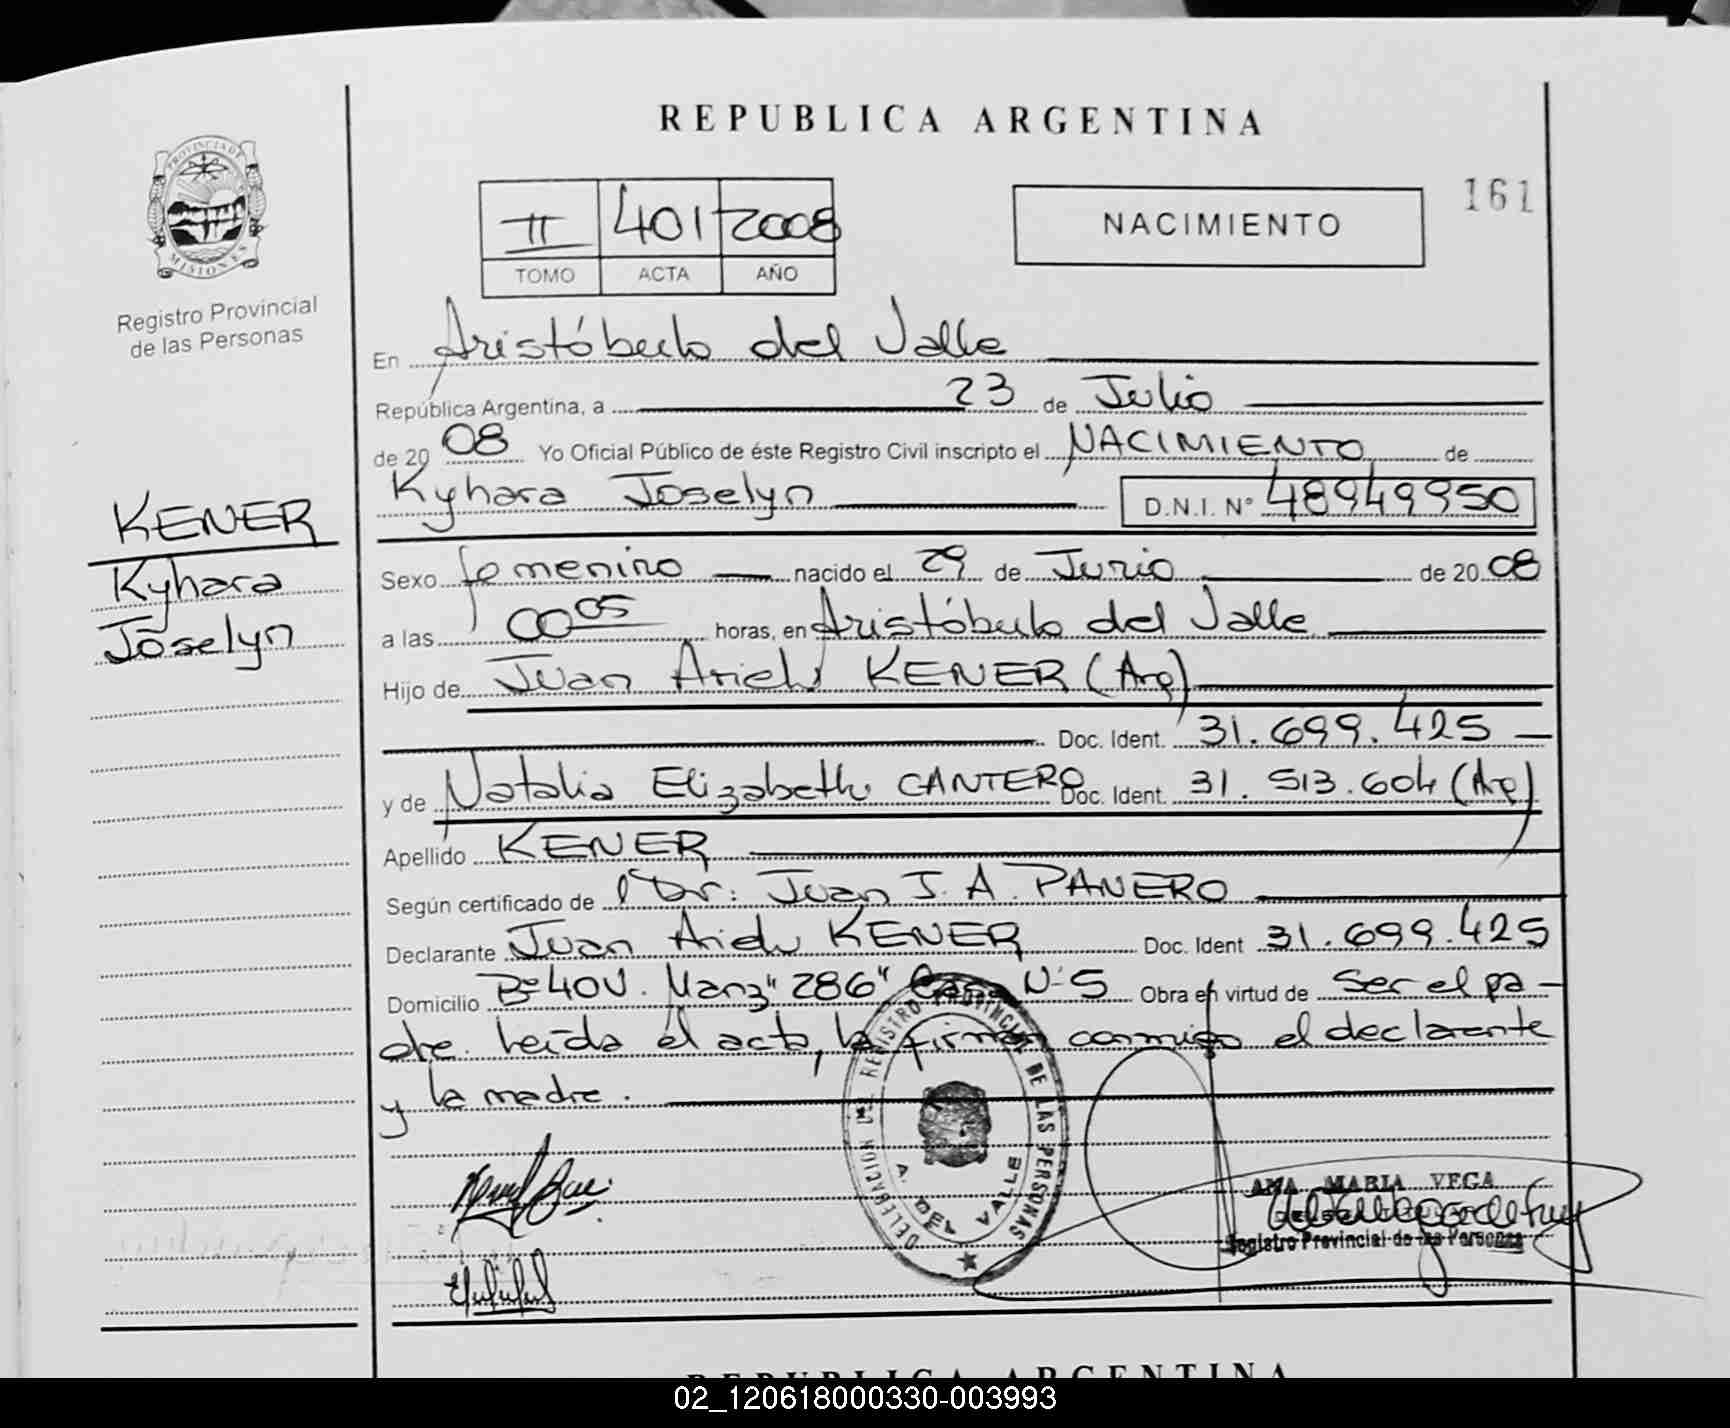 REPUBLICA ARGENTINA
161
II 401 2008
TOMO ACTA AÑO
NACIMIENTO
PROVINCIA DE MISIONES
Registro Provincial
de las Personas
En Aristóbulo del Valle
República Argentina, a 23 de Julio
de 20 08 Yo Oficial Público de éste Registro Civil inscripto el NACIMIENTO de
Kyhara Joselyn D.N.I. Nº 48949950
KENER
Kyhara
Joselyn
Sexo femenino nacido el 29 de Junio de 20 08
a las 00 05 horas, en Aristóbulo del Valle
Hijo de Juan Ariel KENER (Arg)
Doc. Ident. 31.699.425
y de Natalia Elizabeth CANTERO Doc. Ident. 31.513.604 (Arg)
Apellido KENER
Según certificado de Dr: Juan J. A. PANERO
Declarante Juan Ariel KENER Doc. Ident 31.699.425
Domicilio Bº 40V. Manz "286" Casa Nº 5 Obra en virtud de ser el pa-
dre. leída el acta, la firman conmigo el declarante
y la madre.
DELEGACION DEL REGISTRO PROVINCIAL DE LAS PERSONAS
A. DEL VALLE
ANA MARIA VEGA
Registro Provincial de las Personas
REPUBLICA ARGENTINA
02_120618000330-003993